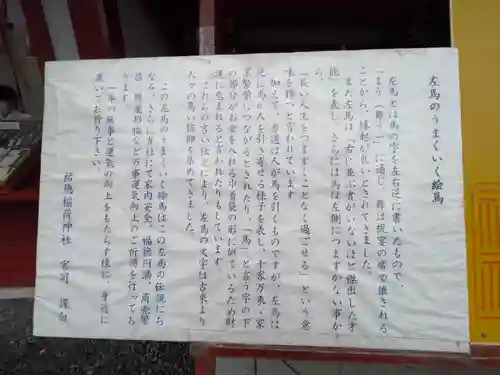 左馬のうまくいく絵馬
左馬とは馬の字を左右逆に書いたもので、
「まう（舞う）」に通じ、舞は祝宴の席で催される
ことから、縁起が良いとされてきました。
また左馬は「右に並ぶ者がいないほど傑出した才
能」を表し、さらには馬は左側につまずかない事か
ら、
「長い人生をつまずくことなく過ごせる」という意
味を持つと言われています。
加えて、普通は人が馬を引くものですが、左馬は
逆に馬が人を引き寄せる様子を表し、千客万来・家
業繁栄につながるとされたり、「馬」と言う字の下
の部分がお金を入れる巾着袋の形に似ているため財
運に恵まれると言われたりもしています。
これらの言い伝えにより、左馬の文字は古来より
人々の篤い信仰を集めてきました。
この左馬のうまくいく絵馬はこの左馬の伝説にち
なみ、さらに当社にて家内安全、福徳円満、商売繁
昌、開運招福など万事運気向上のご祈祷を行ってお
ります。
一年の無事と運気の向上をもたらす様に、身近に
置いてお祈り下さい。
稲荷神社　宮司　謹白